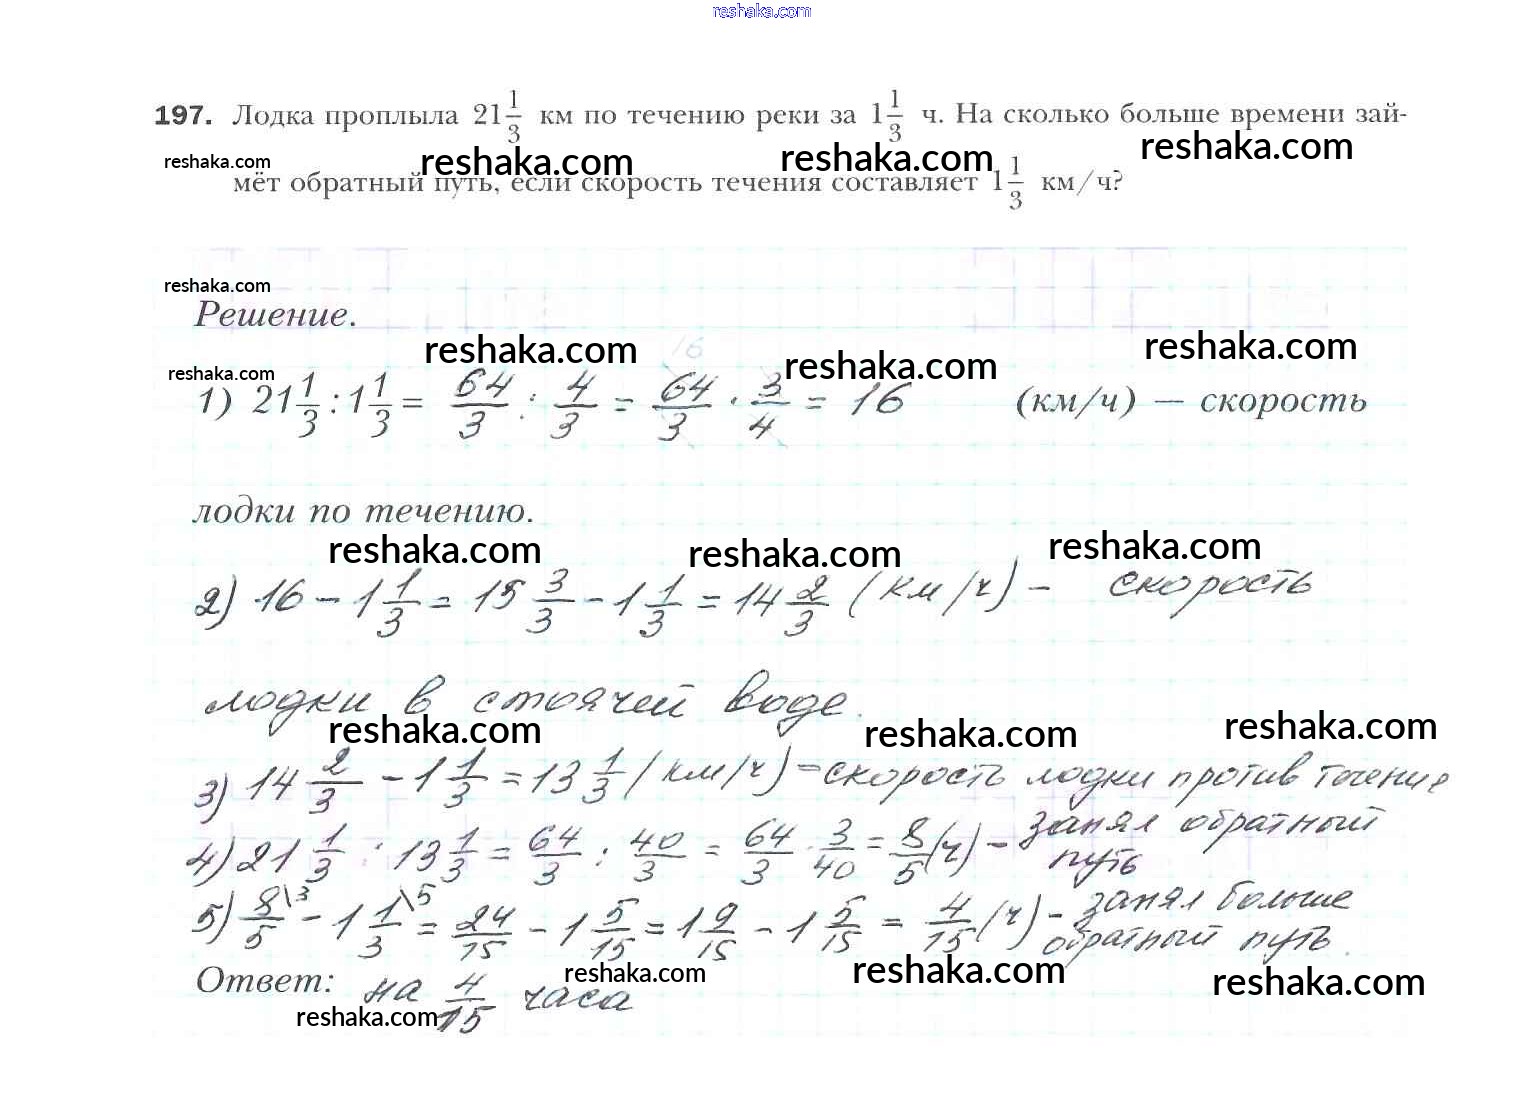 reshaka.com
197. Лодка проплыла 21 1/3 км по течению реки за 1 1/3 ч. На сколько больше времени зай-
reshaka.com reshaka.com reshaka.com reshaka.com
мёт обратный путь, если скорость течения составляет 1 1/3 км/ч?
reshaka.com
Решение.
reshaka.com reshaka.com reshaka.com reshaka.com
16
1) 21 1/3 : 1 1/3 = 64/3 : 4/3 = 64/3 · 3/4 = 16 (км/ч) — скорость
лодки по течению.
reshaka.com reshaka.com reshaka.com
2) 16 - 1 1/3 = 15 3/3 - 1 1/3 = 14 2/3 (км/ч) - скорость
лодки в стоячей воде.
reshaka.com reshaka.com reshaka.com
3) 14 2/3 - 1 1/3 = 13 1/3 (км/ч) - скорость лодки против течение
4) 21 1/3 : 13 1/3 = 64/3 : 40/3 = 64/3 · 3/40 = 8/5 (ч) - занял обратный
путь
5) 8/5 \3 - 1 1/3 \5 = 24/15 - 1 5/15 = 1 9/15 - 1 5/15 = 4/15 (ч) - занял больше
обратный путь.
reshaka.com reshaka.com reshaka.com
Ответ: на 4/15 часа
reshaka.com